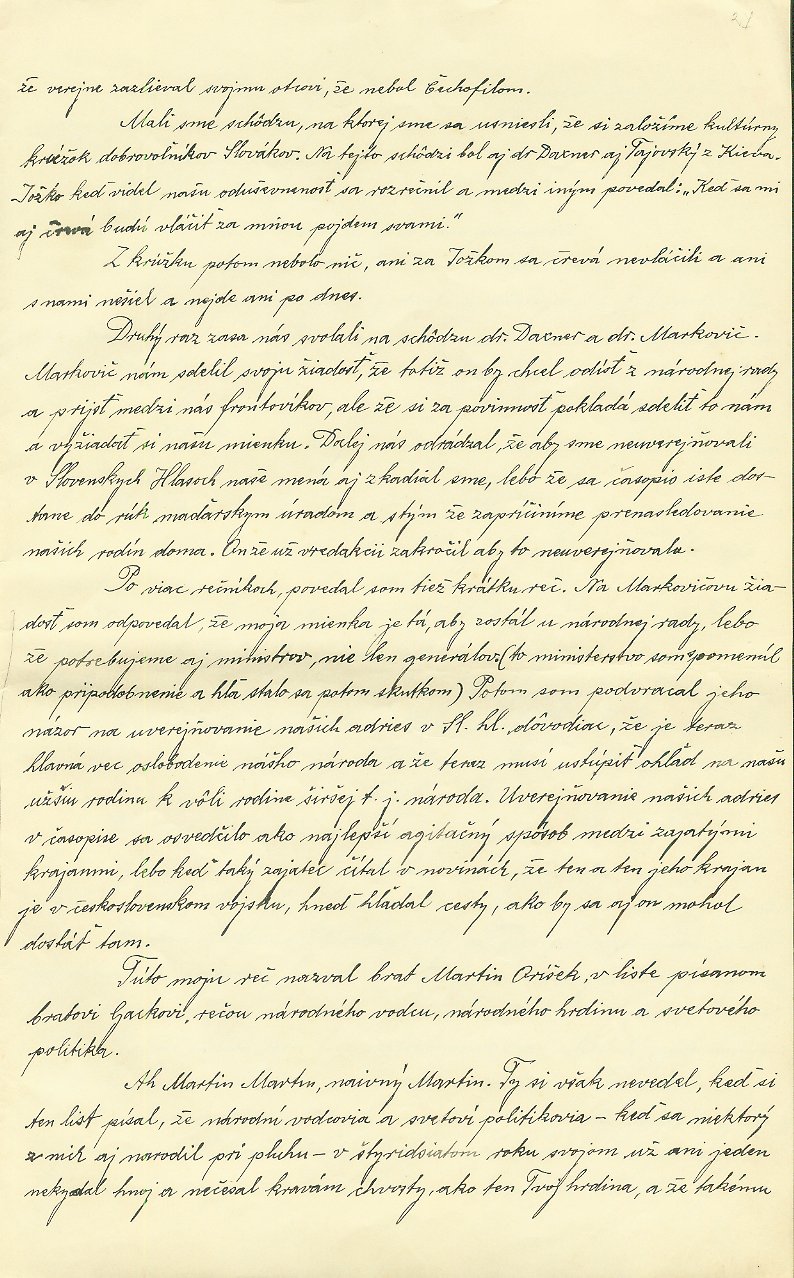 21
že verejne zazlieval svojmu otcovi, že nebol Čechofilom.
Mali sme schôdzu, na ktorej sme sa usniesli, že si založíme kultúrny
krúžok dobrovolníkov Slovákov. Na tejto schôdzi bol aj dr Daxner aj Tajovský z Kieva.
Jožko keď videl našu oduševnenosť sa rozrečnil a medzi iným povedal: „Keď sa mi
aj črevá budú vláčiť za mňou pojdem svami."
Z krúžku potom nebolo nič, ani za Jožkom sa črevá nevláčili a ani
snami nešiel a nejde ani po dnes.
Druhý raz zasa nás svolali na schôdzu dr. Daxner a dr. Markovič.
Markovič nám sdelil svoju žiadosť, že totiž on by chcel odísť z národnej rady
a prijsť medzi nás frontovíkov, ale že si za povinnosť pokladá sdeliť to nám
a vyžiadať si našu mienku. Ďalej nás odrádzal, že aby sme neuverejňovali
v Slovenskych Hlasoch naše mená aj zkadiál sme, lebo že sa časopis iste dos-
tane do rúk maďarskym úradom a stým že zapríčiníme prenasledovanie
našich rodín doma. On že už vredakcii zakročil aby to neuverejňovala.
Po viac rečníkoch, povedal som tiež krátku reč. Na Markovičovu žia-
dosť som odpovedal, že moja mienka je tá, aby zostál u národnej rady, lebo
že potrebujeme aj ministrov, nie len generálov. (to ministerstvo som spomenúl
ako pripodobnenie a hľa stalo sa potom skutkom) Potom som podvracal jeho
názor na uverejňovanie našich adries v Sl. hl. dôvodiac, že je teraz
hlavná vec oslobodenie nášho národa a že teraz musí ustúpiť ohľad na našu
užšiu rodinu k vôli rodine širšej t. j. národa. Uverejňovanie našich adries
v časopise sa osvedčilo ako najlepší agitačný spôsob medzi zajatými
krajanmi, lebo keď taký zajateć čítal v novinách, že ten a ten jeho krajan
je v československom vojsku, hneď hľádal cesty, ako by sa aj on mohol
dostáť tam.
Túto moju reč nazval brat Martin Oríšek, v liste písanom
bratovi Gackovi, rečou národného vodcu, národného hrdinu a svetového
politika.
Ah Martin Martin, naivný Martin. Ty si však nevedel, keď si
ten list písal, že národní vodcovia a svetoví politikovia – keď sa niektorý
z nich aj narodil pri pluhu – v štyridsiatom roku svojom už ani jeden
nekydal hnoj a nečesal kravám chvosty, ako ten Tvoj hrdina, a že takému